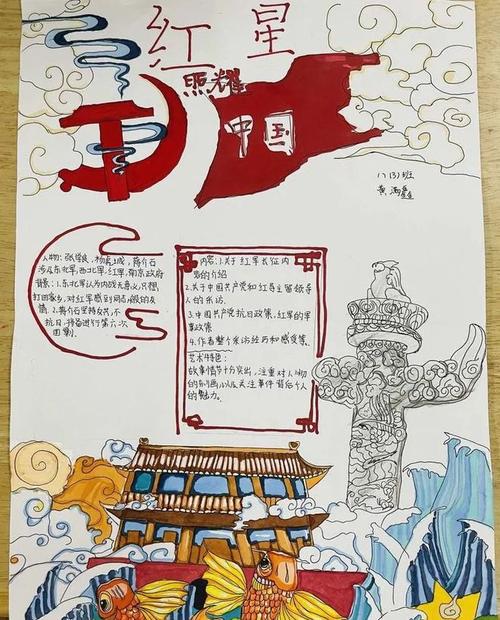 红星
照耀
中国
八(3)班
黄湘
人物:张学良,杨虎城,蒋介石
涉及东北军,西北军,红军,南京政府
背景:1.东北军认为内战无意义,只想
打回家乡,对红军感到同志般的友
情
2.蒋介石坚持反共,不
抗日,预备进行第六次
围剿.
内容:1.关于红军长征内
容的介绍
2.关于中国共产党和红军主要领导
人的采访.
3.中国共产党抗日政策,红军的军
事政策
4.作者整个采访经历和感受等.
艺术特色:
故事情节十分突出,注重对人物
的刻画,以及关注事件背后个人
的魅力。